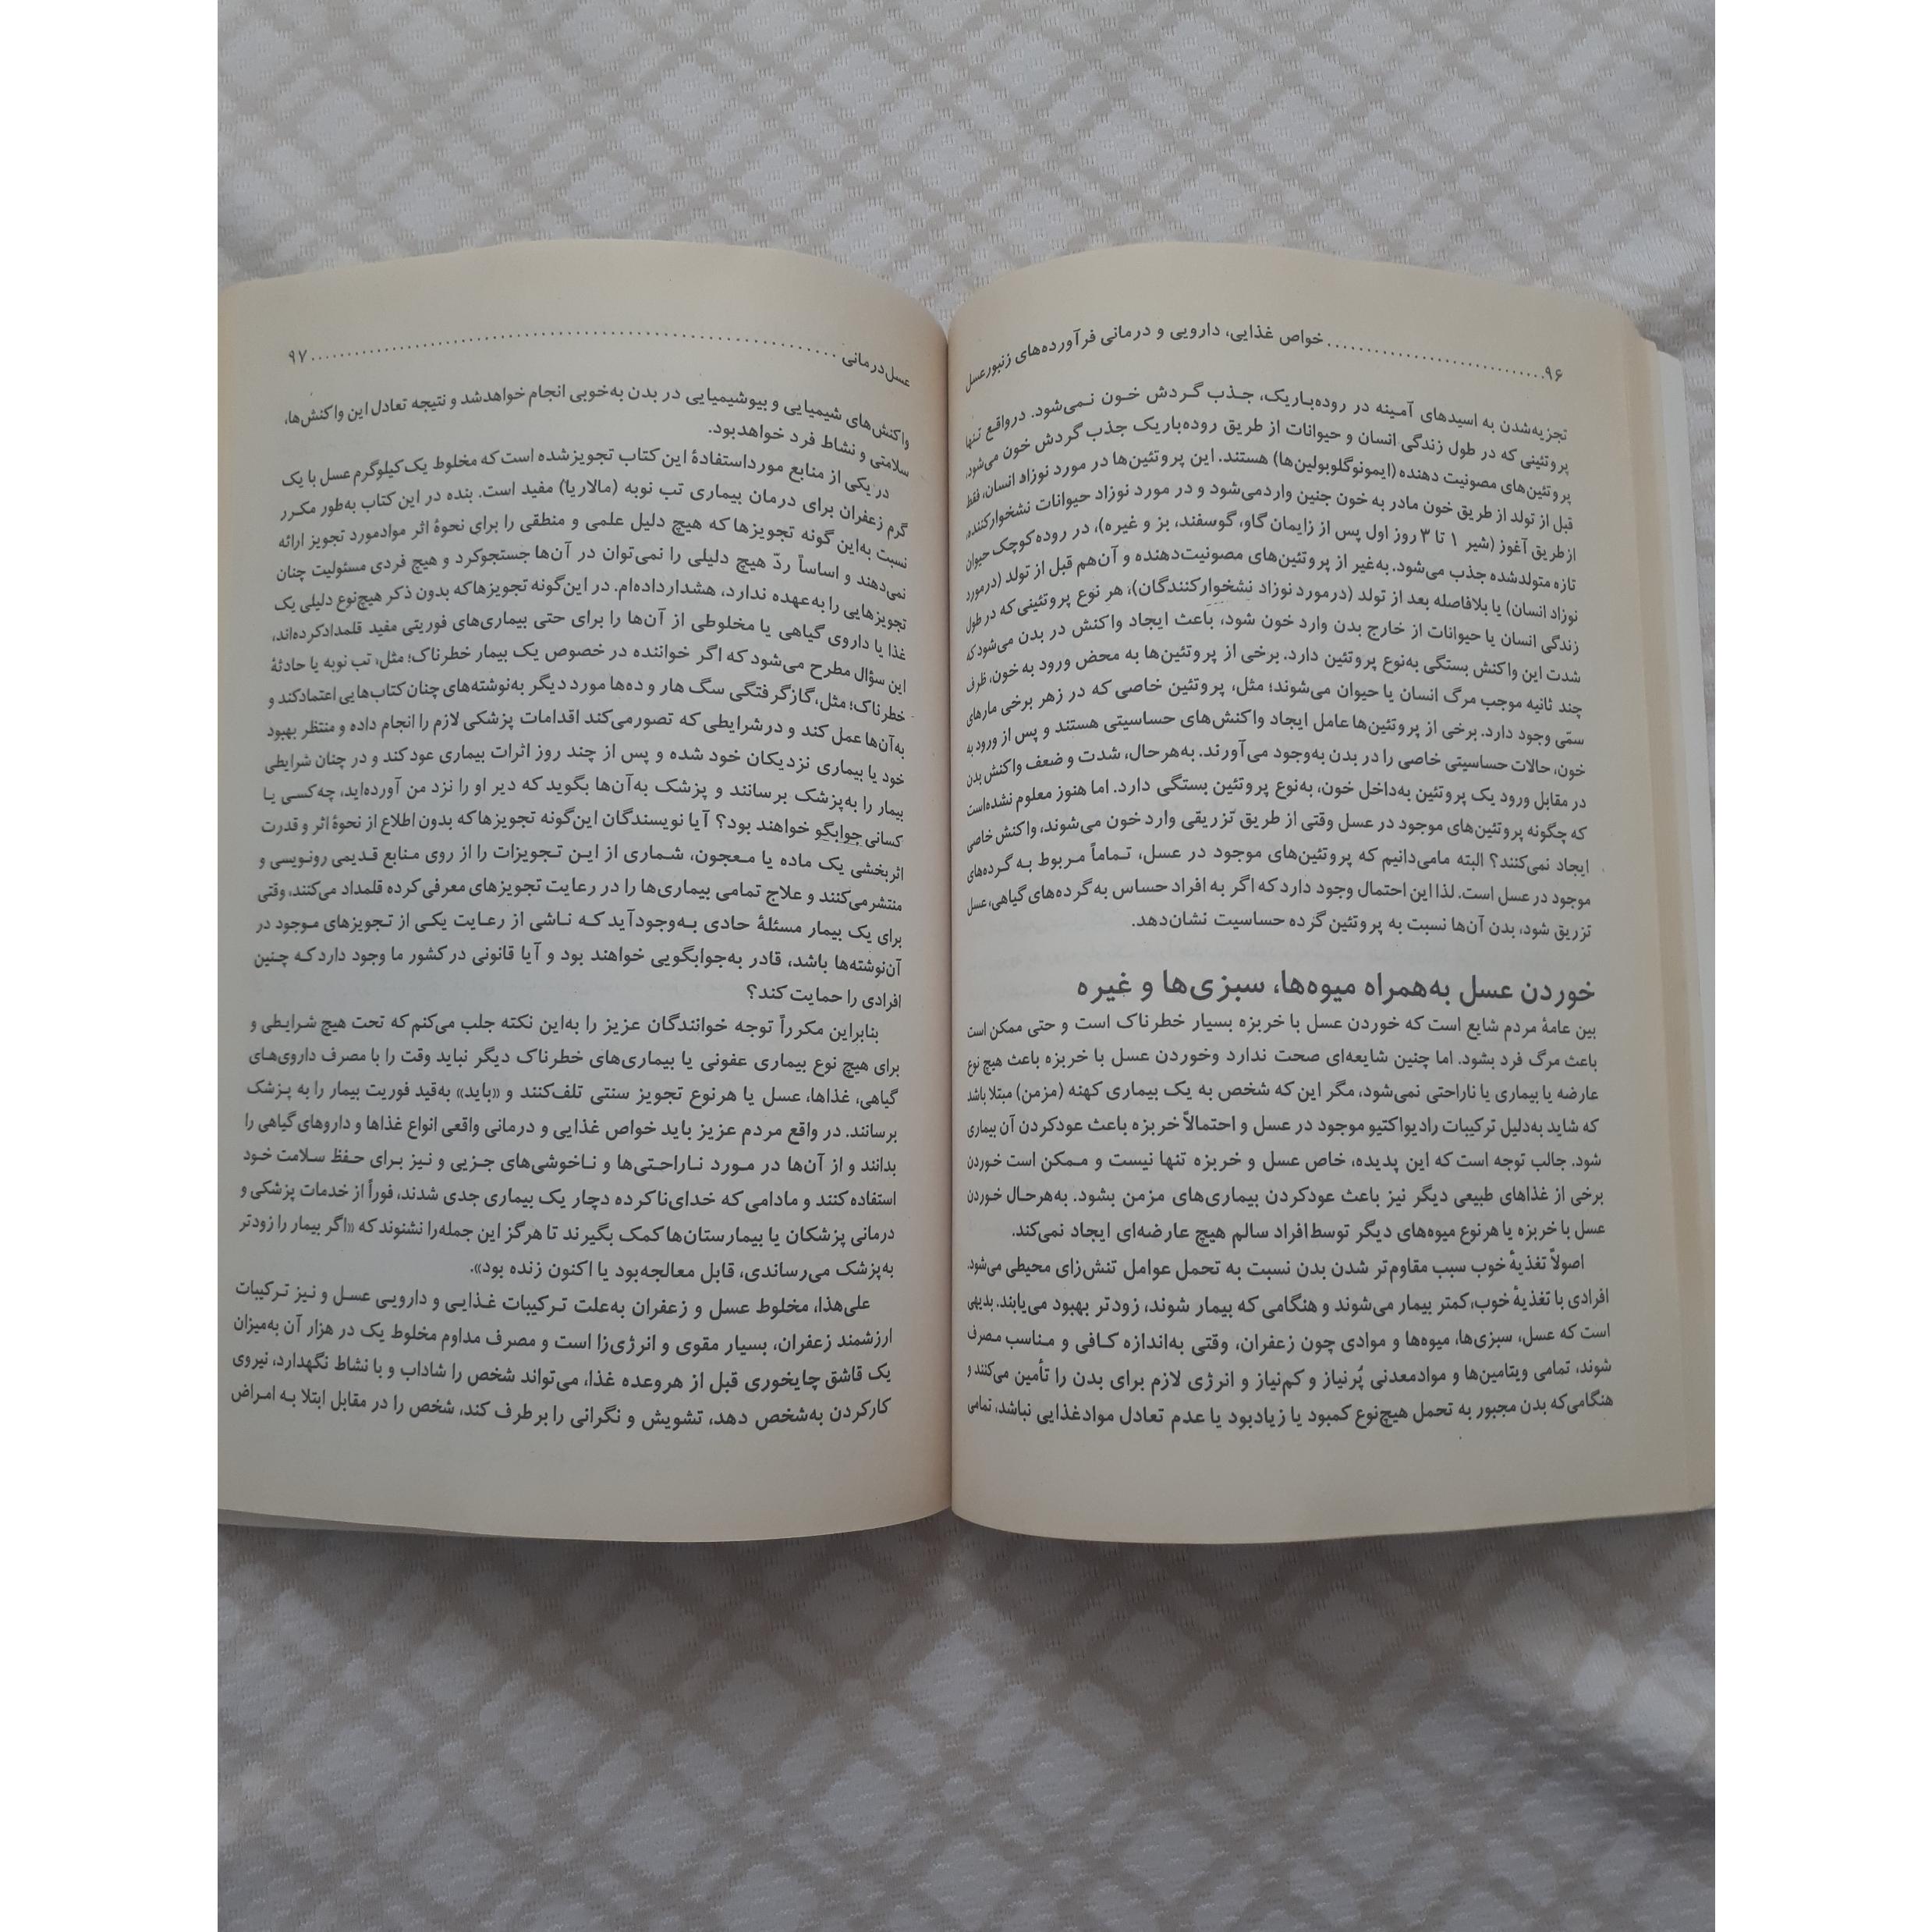 ۹۶ ............................. خواص غذایی، دارویی و درمانی فرآورده‌های زنبورعسل
تجزیه‌شدن به اسیدهای آمینه در روده‌باریک، جذب گردش خون نمی‌شود. درواقع تنها
پروتئینی که در طول زندگی انسان و حیوانات از طریق روده‌باریک جذب گردش خون می‌شود،
پروتئین‌های مصونیت دهنده (ایمونوگلوبولین‌ها) هستند. این پروتئین‌ها در مورد نوزاد انسان، فقط
قبل از تولد از طریق خون مادر به خون جنین واردمی‌شود و در مورد نوزاد حیوانات نشخوارکننده،
ازطریق آغوز (شیر ۱ تا ۳ روز اول پس از زایمان گاو، گوسفند، بز و غیره)، در روده کوچک حیوان
تازه متولدشده جذب می‌شود. به‌غیر از پروتئین‌های مصونیت‌دهنده و آن‌هم قبل از تولد (درمورد
نوزاد انسان) یا بلافاصله بعد از تولد (درمورد نوزاد نشخوارکنندگان)، هر نوع پروتئینی که در طول
زندگی انسان یا حیوانات از خارج بدن وارد خون شود، باعث ایجاد واکنش در بدن می‌شود که
شدت این واکنش بستگی به‌نوع پروتئین دارد. برخی از پروتئین‌ها به محض ورود به خون، ظرف
چند ثانیه موجب مرگ انسان یا حیوان می‌شوند؛ مثل، پروتئین خاصی که در زهر برخی مارهای
سمّی وجود دارد. برخی از پروتئین‌ها عامل ایجاد واکنش‌های حساسیتی هستند و پس از ورود به
خون، حالات حساسیتی خاصی را در بدن به‌وجود می‌آورند. به‌هرحال، شدت و ضعف واکنش بدن
در مقابل ورود یک پروتئین به‌داخل خون، به‌نوع پروتئین بستگی دارد. اما هنوز معلوم نشده‌است
که چگونه پروتئین‌های موجود در عسل وقتی از طریق تزریقی وارد خون می‌شوند، واکنش خاصی
ایجاد نمی‌کنند؟ البته مامی‌دانیم که پروتئین‌های موجود در عسل، تماماً مربوط به گرده‌های
موجود در عسل است. لذا این احتمال وجود دارد که اگر به افراد حساس به گرده‌های گیاهی، عسل
تزریق شود، بدن آن‌ها نسبت به پروتئین گرده حساسیت نشان‌دهد.
خوردن عسل به‌همراه میوه‌ها، سبزی‌ها و غیره
بین عامهٔ مردم شایع است که خوردن عسل با خربزه بسیار خطرناک است و حتی ممکن است
باعث مرگ فرد بشود. اما چنین شایعه‌ای صحت ندارد وخوردن عسل با خربزه باعث هیچ نوع
عارضه یا بیماری یا ناراحتی نمی‌شود، مگر این که شخص به یک بیماری کهنه (مزمن) مبتلا باشد
که شاید به‌دلیل ترکیبات رادیواکتیو موجود در عسل و احتمالاً خربزه باعث عودکردن آن بیماری
شود. جالب توجه است که این پدیده، خاص عسل و خربزه تنها نیست و ممکن است خوردن
برخی از غذاهای طبیعی دیگر نیز باعث عودکردن بیماری‌های مزمن بشود. به‌هرحال خوردن
عسل با خربزه یا هرنوع میوه‌های دیگر توسط افراد سالم هیچ عارضه‌ای ایجاد نمی‌کند.
اصولاً تغذیهٔ خوب سبب مقاوم‌تر شدن بدن نسبت به تحمل عوامل تنش‌زای محیطی می‌شود.
افرادی با تغذیهٔ خوب، کمتر بیمار می‌شوند و هنگامی که بیمار شوند، زودتر بهبود می‌یابند. بدیهی
است که عسل، سبزی‌ها، میوه‌ها و موادی چون زعفران، وقتی به‌اندازه کافی و مناسب مصرف
شوند، تمامی ویتامین‌ها و موادمعدنی پُرنیاز و کم‌نیاز و انرژی لازم برای بدن را تأمین می‌کنند و
هنگامی‌که بدن مجبور به تحمل هیچ‌نوع کمبود یا زیادبود یا عدم تعادل موادغذایی نباشد، تمامی
عسل‌درمانی ............................. ۹۷
واکنش‌های شیمیایی و بیوشیمیایی در بدن به‌خوبی انجام خواهدشد و نتیجه تعادل این واکنش‌ها،
سلامتی و نشاط فرد خواهدبود.
در یکی از منابع مورداستفادهٔ این کتاب تجویزشده است که مخلوط یک کیلوگرم عسل با یک
گرم زعفران برای درمان بیماری تب نوبه (مالاریا) مفید است. بنده در این کتاب به‌طور مکرر
نسبت به‌این گونه تجویزها که هیچ دلیل علمی و منطقی را برای نحوهٔ اثر موادمورد تجویز ارائه
نمی‌دهند و اساساً ردّ هیچ دلیلی را نمی‌توان در آن‌ها جستجوکرد و هیچ فردی مسئولیت چنان
تجویزهایی را به‌عهده ندارد، هشدارداده‌ام. در این‌گونه تجویزها که بدون ذکر هیچ‌نوع دلیلی یک
غذا یا داروی گیاهی یا مخلوطی از آن‌ها را برای حتی بیماری‌های فوریتی مفید قلمدادکرده‌اند،
این سؤال مطرح می‌شود که اگر خواننده در خصوص یک بیمار خطرناک؛ مثل، تب نوبه یا حادثهٔ
خطرناک؛ مثل، گازگرفتگی سگ هار و ده‌ها مورد دیگر به‌نوشته‌های چنان کتاب‌هایی اعتمادکند و
به‌آن‌ها عمل کند و درشرایطی که تصورمی‌کند اقدامات پزشکی لازم را انجام داده و منتظر بهبود
خود یا بیماری نزدیکان خود شده و پس از چند روز اثرات بیماری عود کند و در چنان شرایطی
بیمار را به‌پزشک برسانند و پزشک به‌آن‌ها بگوید که دیر او را نزد من آورده‌اید، چه‌کسی یا
کسانی جوابگو خواهند بود؟ آیا نویسندگان این‌گونه تجویزها که بدون اطلاع از نحوهٔ اثر و قدرت
اثربخشی یک ماده یا معجون، شماری از این تجویزات را از روی منابع قدیمی رونویسی و
منتشرمی‌کنند و علاج تمامی بیماری‌ها را در رعایت تجویزهای معرفی‌کرده قلمداد می‌کنند، وقتی
برای یک بیمار مسئلهٔ حادی به‌وجودآید که ناشی از رعایت یکی از تجویزهای موجود در
آن‌نوشته‌ها باشد، قادر به‌جوابگویی خواهند بود و آیا قانونی در کشور ما وجود دارد که چنین
افرادی را حمایت کند؟
بنابراین مکرراً توجه خوانندگان عزیز را به‌این نکته جلب می‌کنم که تحت هیچ شرایطی و
برای هیچ نوع بیماری عفونی یا بیماری‌های خطرناک دیگر نباید وقت را با مصرف داروی‌های
گیاهی، غذاها، عسل یا هرنوع تجویز سنتی تلف‌کنند و «باید» به‌قید فوریت بیمار را به پزشک
برسانند. در واقع مردم عزیز باید خواص غذایی و درمانی واقعی انواع غذاها و داروهای گیاهی را
بدانند و از آن‌ها در مورد ناراحتی‌ها و ناخوشی‌های جزیی و نیز برای حفظ سلامت خود
استفاده کنند و مادامی که خدای‌ناکرده دچار یک بیماری جدی شدند، فوراً از خدمات پزشکی و
درمانی پزشکان یا بیمارستان‌ها کمک بگیرند تا هرگز این جمله‌را نشنوند که «اگر بیمار را زودتر
به‌پزشک می‌رساندی، قابل معالجه‌بود یا اکنون زنده بود».
علی‌هذا، مخلوط عسل و زعفران به‌علت ترکیبات غذایی و دارویی عسل و نیز ترکیبات
ارزشمند زعفران، بسیار مقوی و انرژی‌زا است و مصرف مداوم مخلوط یک در هزار آن به‌میزان
یک قاشق چایخوری قبل از هروعده غذا، می‌تواند شخص را شاداب و با نشاط نگهدارد، نیروی
کارکردن به‌شخص دهد، تشویش و نگرانی را برطرف کند، شخص را در مقابل ابتلا به امراض